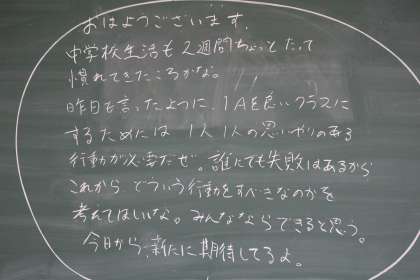 おはようございます。
中学校生活も2週間ちょっとたって
慣れてきたころかな。
昨日も言ったように、1Aを良いクラスに
するためには1人1人の思いやりのある
行動が必要だぜ。誰にでも失敗はあるから
これから、どういう行動をすべきなのかを
考えてほしいな。みんなならできると思う。
今日から、新たに期待してるよ。